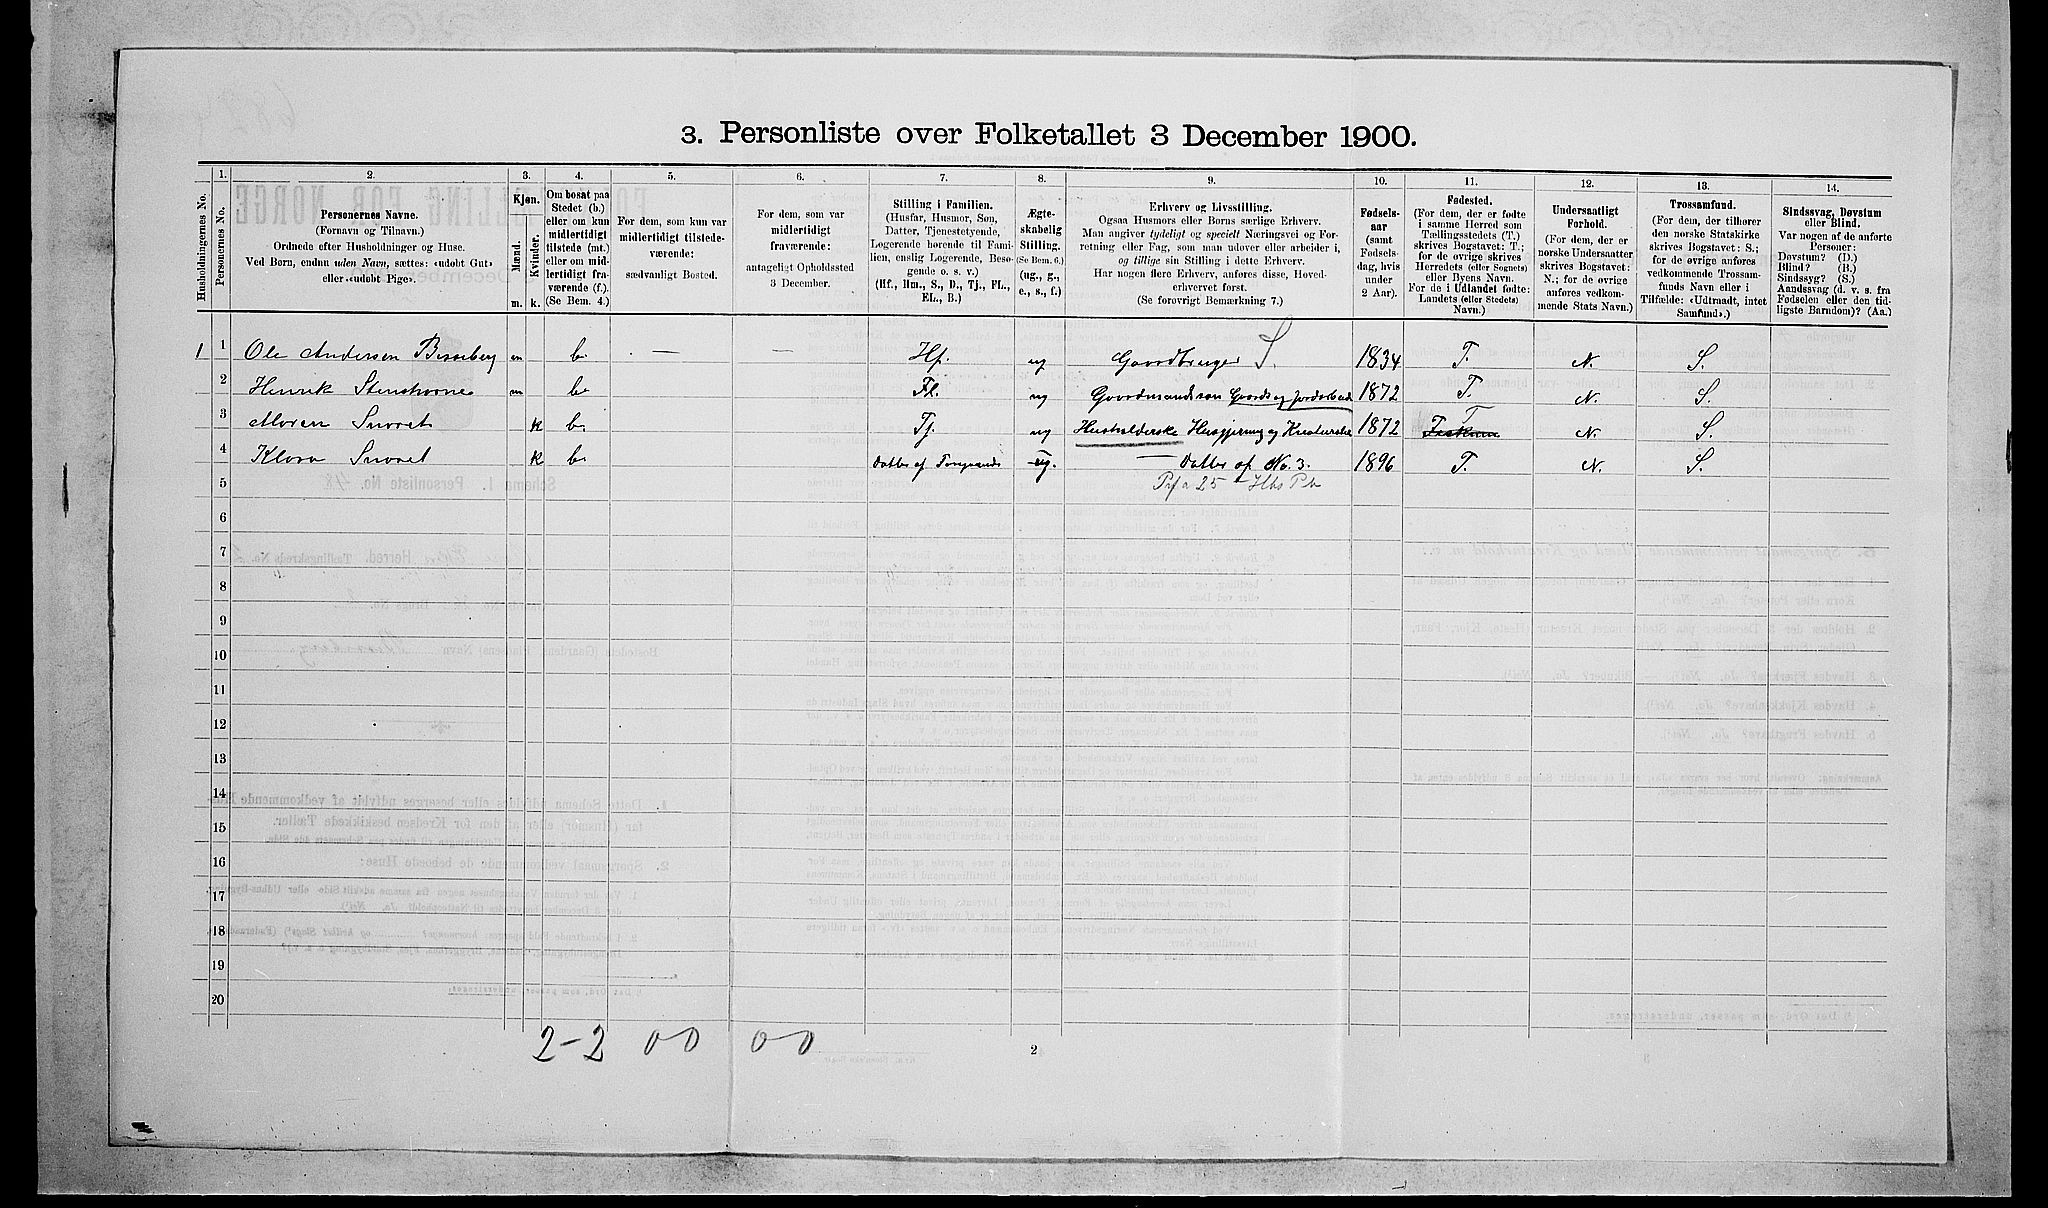 3. Personliste over Folketallet 3 December 1900.
Husholdningernes No.
1.
Personernes No.
2.
Personernes Navne.
(Fornavn og Tilnavn.)
Ordnede efter Husholdninger og Huse.
Ved Børn, endnu uden Navn, sættes: «udøbt Gut»
eller «udøbt Pige».
3.
Kjøn.
Mænd.
Kvinder.
m.
k.
4.
Om bosat paa
Stedet (b.)
eller om kun
midlertidigt
tilstede (mt.)
eller om mid-
lertidigt fra-
værende (f.).
(Se Bem. 4.)
5.
For dem, som kun var
midlertidigt tilstede-
værende:
sædvanligt Bosted.
6.
For dem, som var
midlertidigt
fraværende:
antageligt Opholdssted
3 December.
7.
Stilling i Familien.
(Husfar, Husmor, Søn,
Datter, Tjenestetyende,
Logerende hørende til Fami-
lien, enslig Logerende, Besø-
gende o. s. v.)
(Hf., Hm., S., D., Tj., FL.,
EL., B.)
8.
Ægte-
skabelig
Stilling.
(Se Bem. 6.)
(ug., g.,
e., s., f.)
9.
Erhverv og Livsstilling.
Ogsaa Husmors eller Børns særlige Erhverv.
Man angiver tydeligt og specielt Næringsvei og For-
retning eller Fag, som man udøver eller arbeider i,
og tillige sin Stilling i dette Erhverv.
Har nogen flere Erhverv, anføres disse, Hoved-
erhvervet først.
(Se forøvrigt Bemærkning 7.)
10.
Fødsels-
aar
(samt
Fødsels-
dag, hvis
under
2 Aar).
11.
Fødested.
(For dem, der er fødte
i samme Herred som
Tællingsstedets (T.)
skrives Bogstavet: T.;
for de øvrige skrives
Herredets (eller Sognets)
eller Byens Navn.
For de i Udlandet fødte:
Landets (eller Stedets)
Navn.)
12.
Undersaatligt
Forhold.
(For dem, der er
norske Undersaatter
skrives Bogstavet:
N.; for de øvrige
anføres vedkom-
mende Stats Navn.)
13.
Trossamfund.
(For dem, der tilhører
den norske Statskirke
skrives Bogstavet: S.;
for de øvrige anføres
vedkommende Trossam-
funds Navn eller i
Tilfælde: «Udtraadt, intet
Samfund».)
14.
Sindssvag, Døvstum
eller Blind.
Var nogen af de anførte
Personer:
Døvstum? (D.)
Blind? (B.)
Sindssyg? (S.)
Aandssvag (d. v. s. fra
Fødselen eller den tid-
ligste Barndom)? (Aa.)
1 1 Ole Andersen Bessberg m b. — — Hf. ug Gaardbruger S. 1834 T. N. S.
2 Henrik m b. Fl. ug Gaardmandsøn 1872 T. N. S.
3 Maren k b. Tj. ug Husholderske 1872 T N. S.
4 Klara k b. Datter af ug. — Datter af No. 3. 1896 T. N. S.
5
6
7
8
9
10
11
12
13
14
15
16
17
18
19
20
2-2 0-0 0-0
2